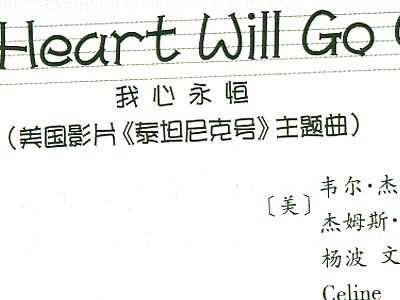 Heart Will Go
我心永恒
（美国影片《泰坦尼克号》主题曲）
〔美〕
韦尔·杰
杰姆斯·
杨波 文
Celine